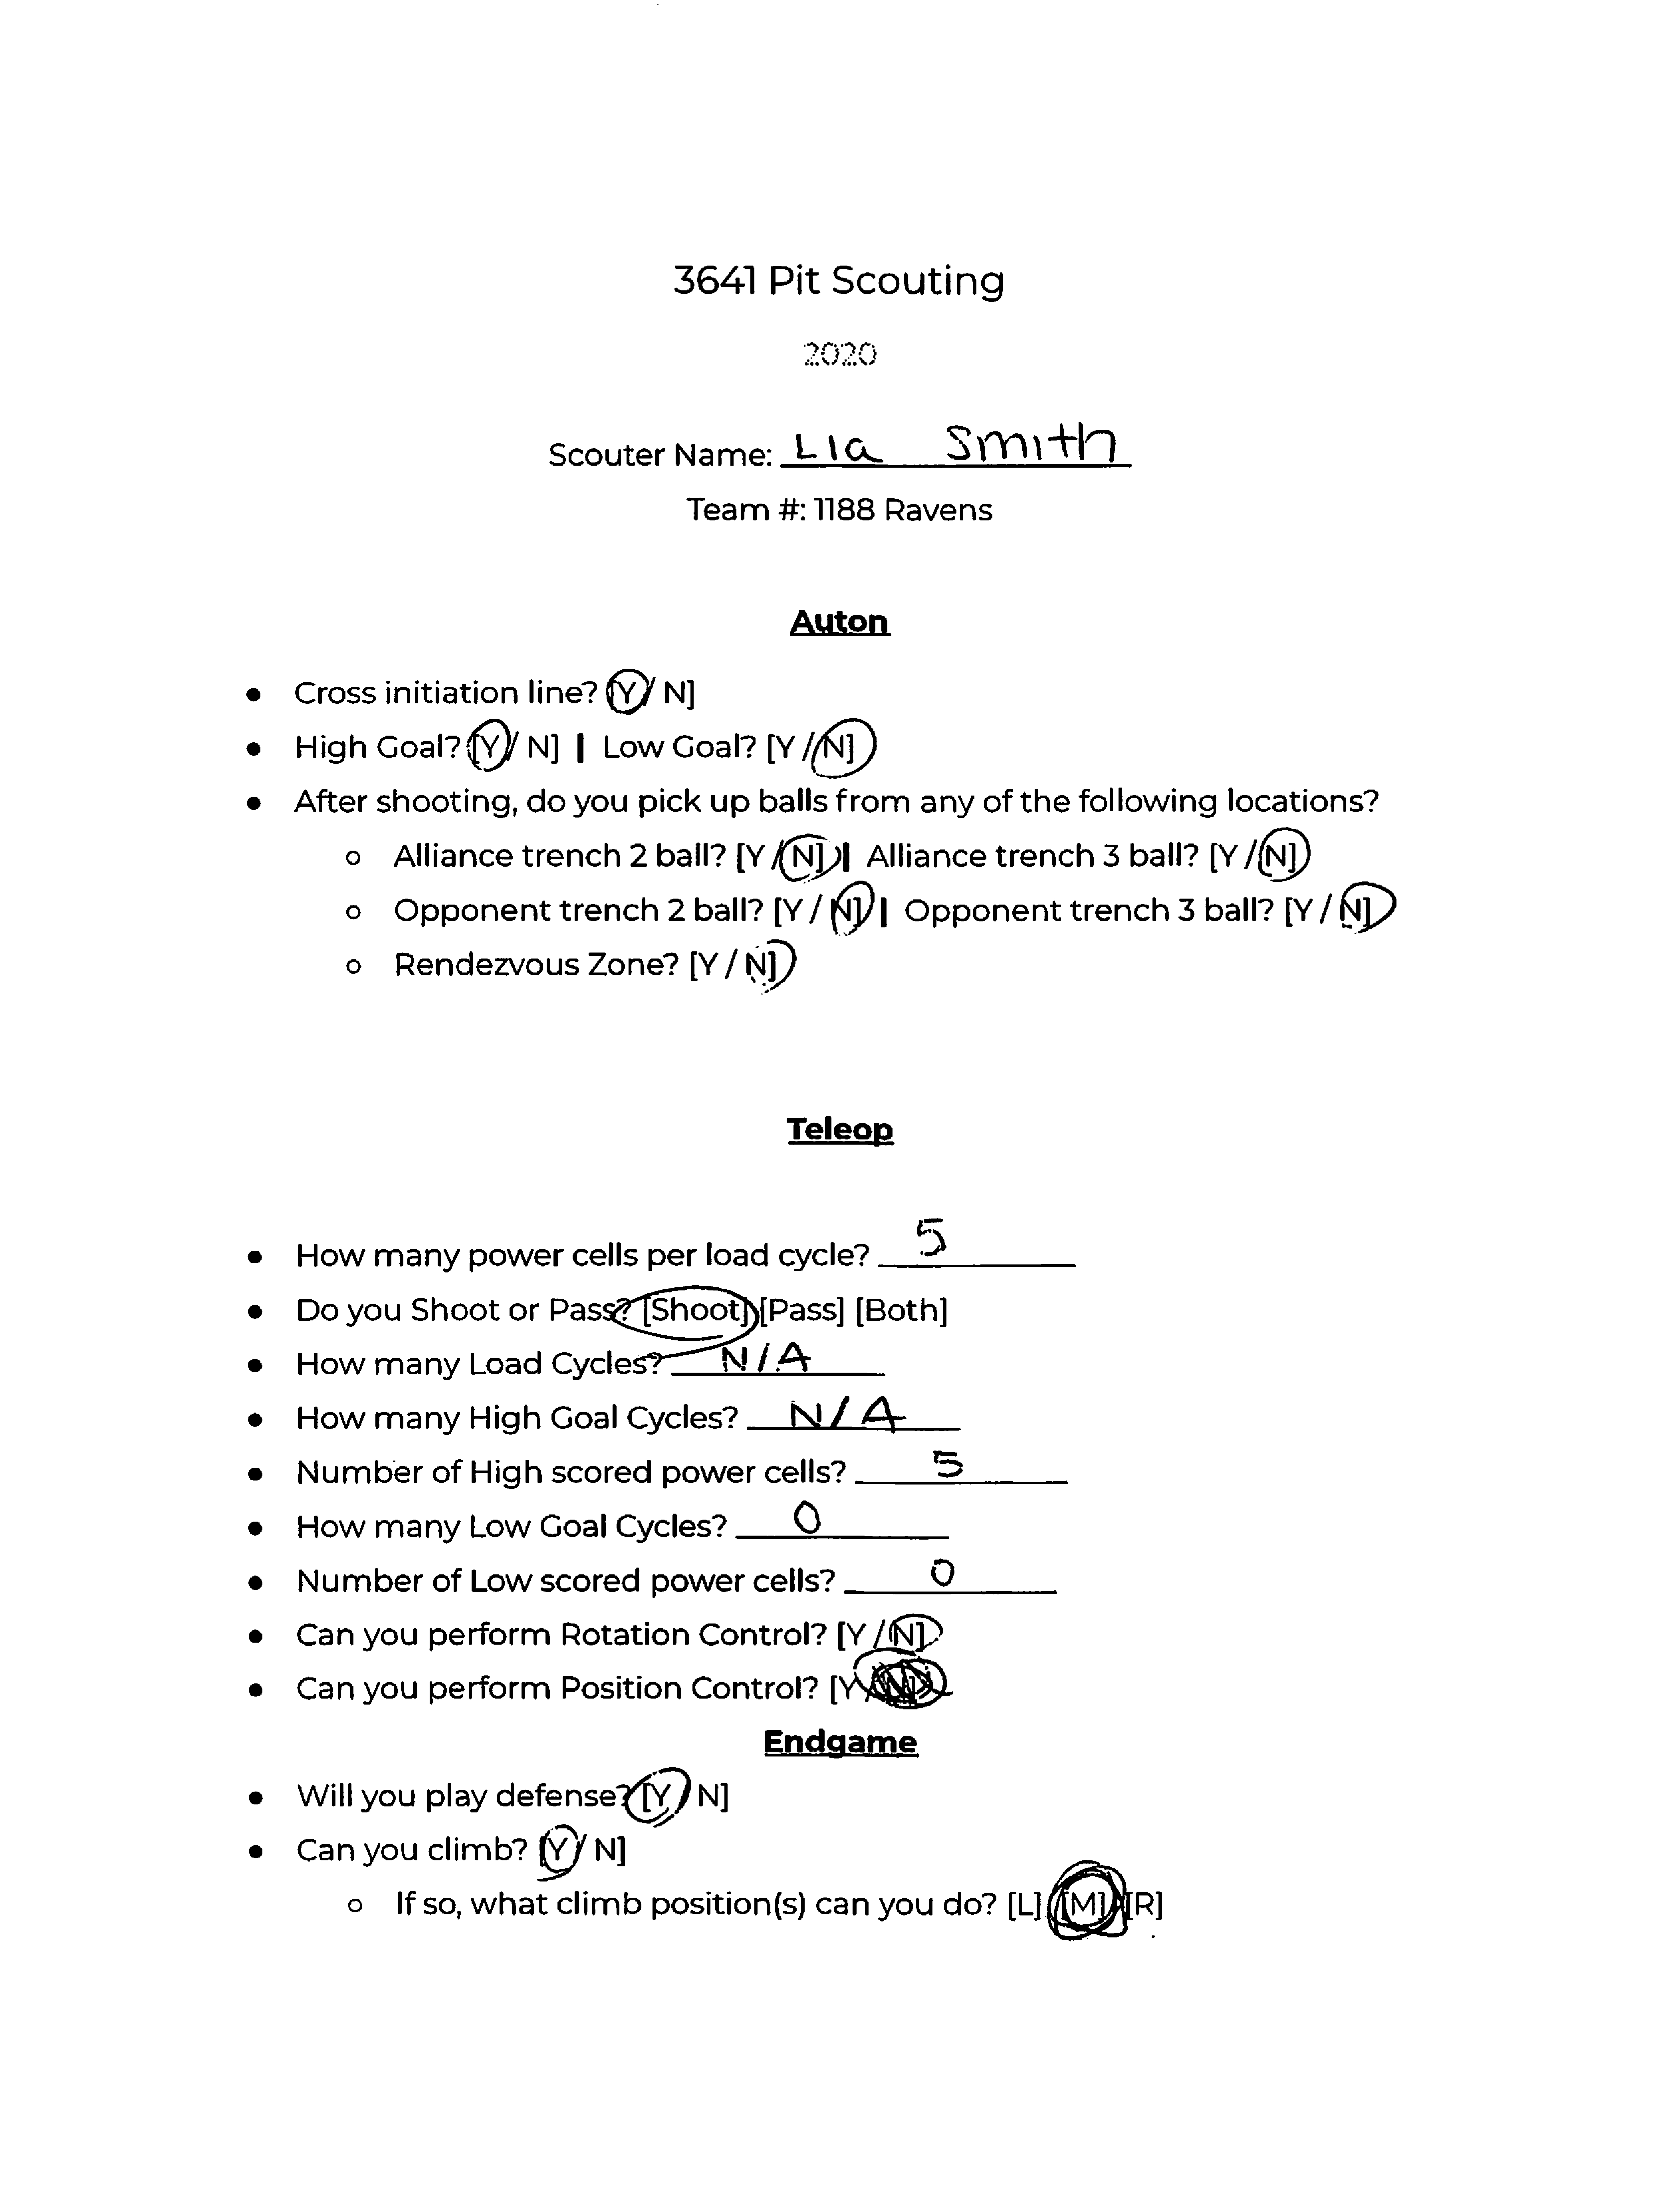 3641 Pit Scouting
2020
Scouter Name: Lia Smith
Team #: 1188 Ravens
Auton
• Cross initiation line? [Y/ N]
• High Goal? [Y/ N] | Low Goal? [Y / N]
• After shooting, do you pick up balls from any of the following locations?
o Alliance trench 2 ball? [Y / N] | Alliance trench 3 ball? [Y / N]
o Opponent trench 2 ball? [Y / N] | Opponent trench 3 ball? [Y / N]
o Rendezvous Zone? [Y / N]
Teleop
• How many power cells per load cycle? 5
• Do you Shoot or Pass? [Shoot] [Pass] [Both]
• How many Load Cycles? N/A
• How many High Goal Cycles? N/A
• Number of High scored power cells? 5
• How many Low Goal Cycles? 0
• Number of Low scored power cells? 0
• Can you perform Rotation Control? [Y / N]
• Can you perform Position Control? [Y / N]
Endgame
• Will you play defense? [Y / N]
• Can you climb? [Y / N]
o If so, what climb position(s) can you do? [L] [M] [R]